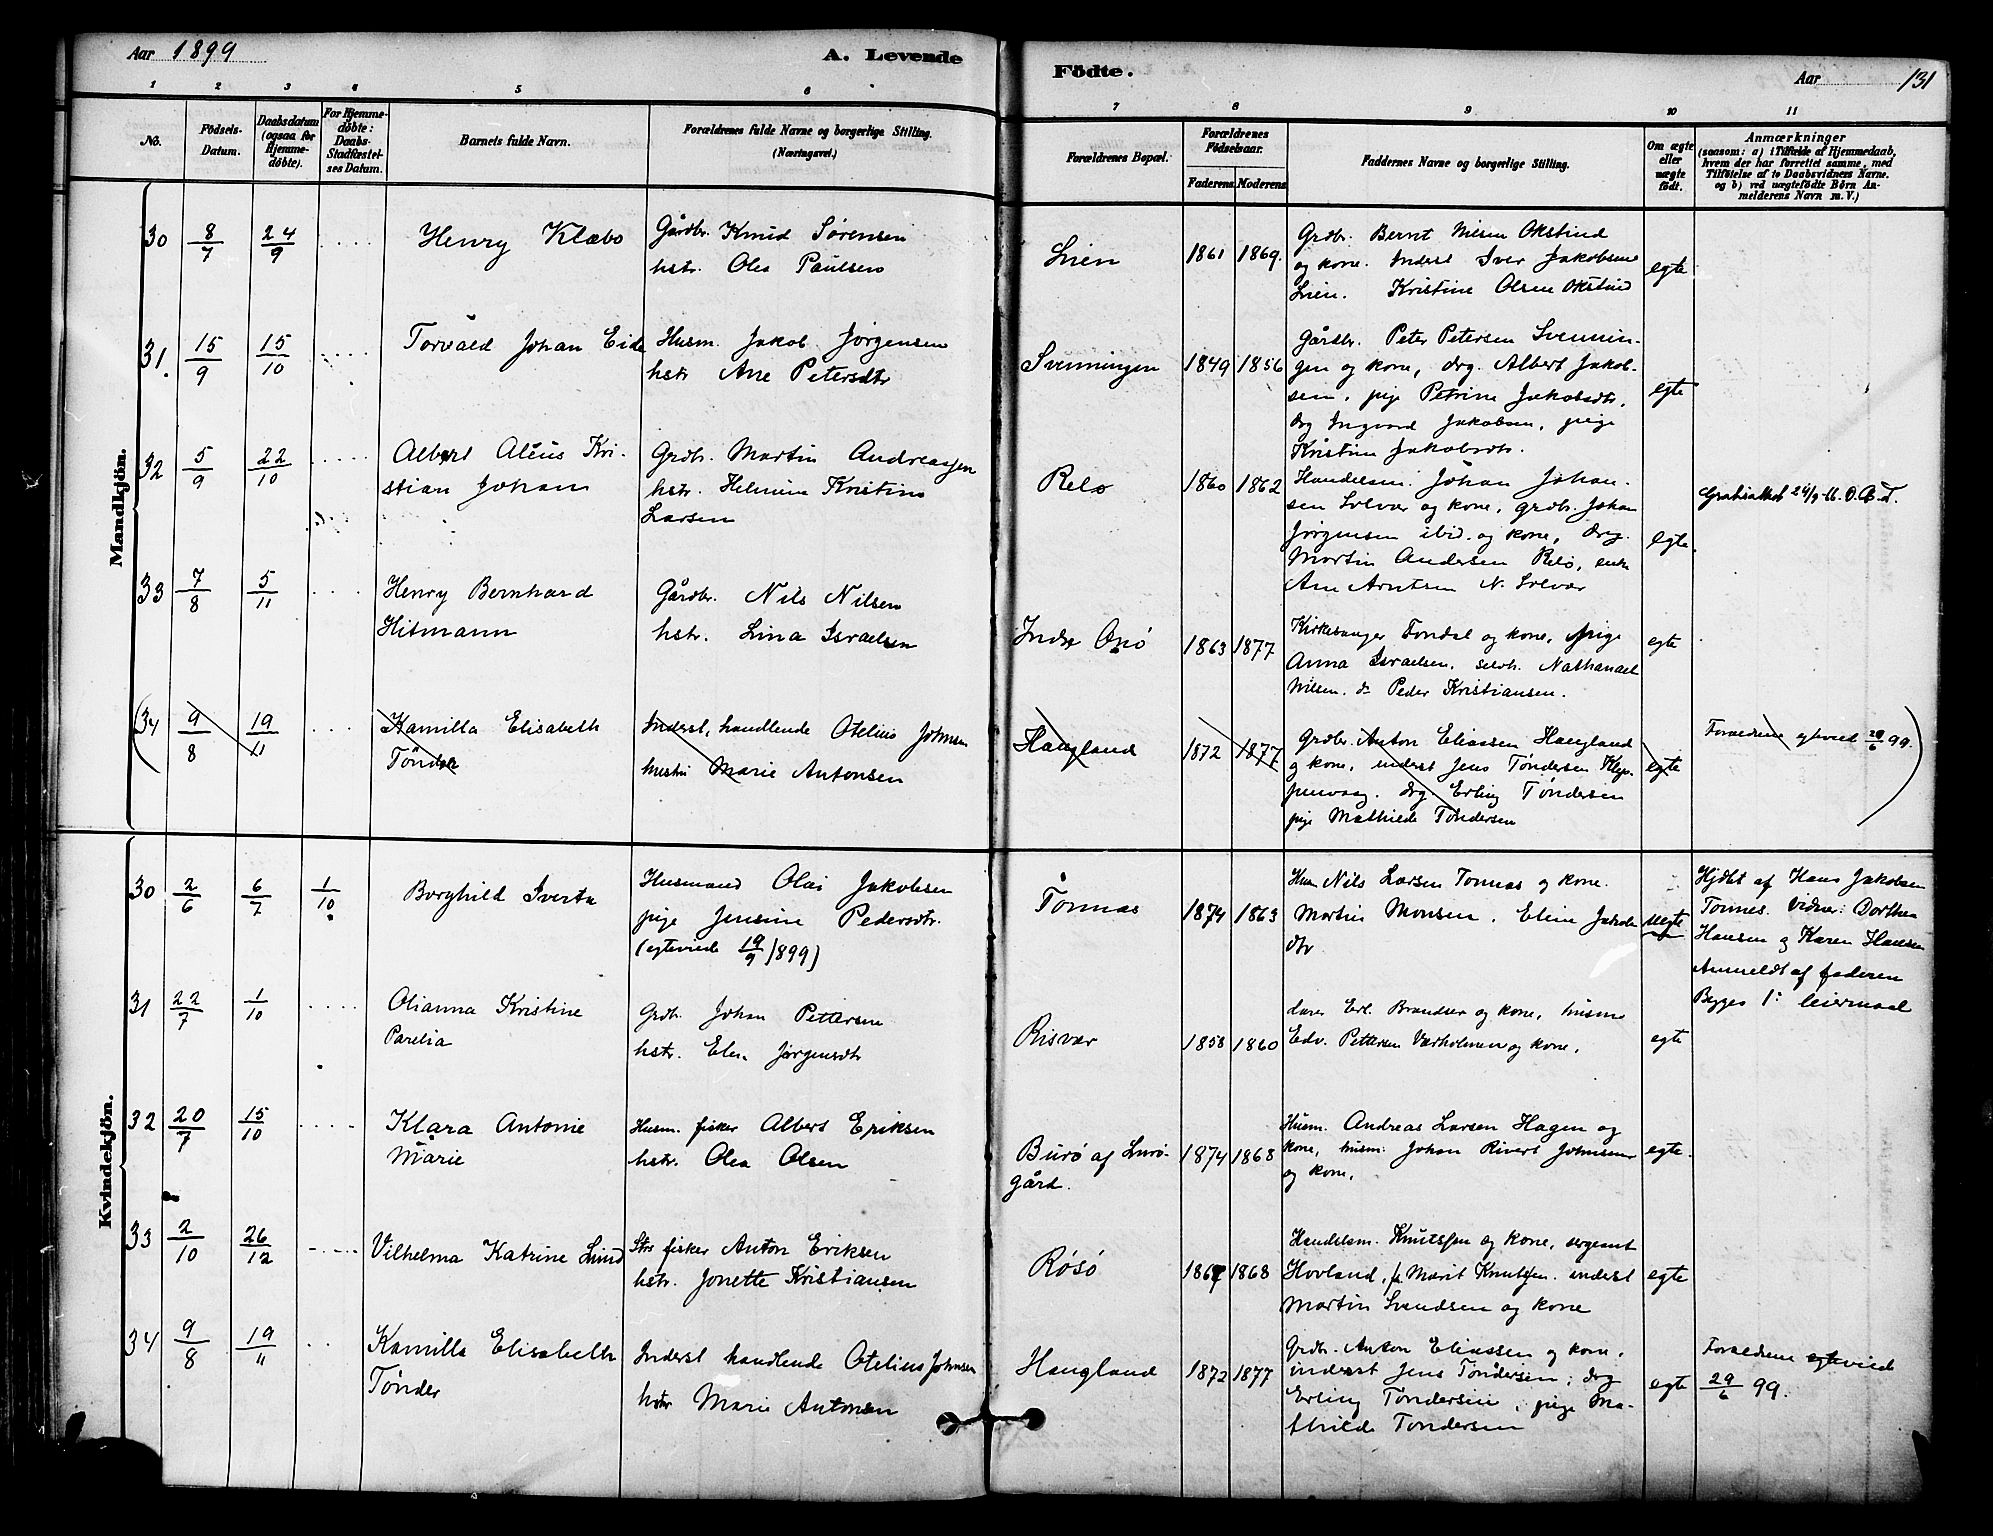 Aar 1899
A. Levende
Födte.
Aar
131
1 2 3 4 5 6
7 8 9 10 11
No.
Födsels-
Datum.
Daabsdatum
(ogsaa for
Hjemme-
döbte).
For Hjemme-
döbte:
Daabs-
Stadfæstel-
ses Datum.
Barnets fulde Navn.
Forældrenes fulde Navne og borgerlige Stilling.
(Næringsvei.)
Forældrenes Bopæl.
Forældrenes
Födselsaar.
Faderens.
Moderens.
Faddernes Navne og borgerlige Stilling.
Om ægte
eller
uægte
födt.
Anmærkninger
(saasom: a) i Tilfælde af Hjemmedaab,
hvem der har forrettet samme, med
Tilföielse af to Daabsvidners Navne.
og b) ved uægtefödte Börn An-
melderens Navn m. V.)
Mandkjön.
30 8/7 24/9 Henry Klæbo
Gårdbr. Knud Sørensen
hstr. Olea Paulsen
Lien 1861 1869.
Grdbr. Bernt Nilsen Okstind
og kone. Inderst Iver Jakobsen
Lien. Kristine Olsen Okstind
egte
31. 15/9 15/10 Torvald Johan Eide
Husm. Jakob Jørgensen
hstr Ane Petersdtr
Svenningen 1849 1856
Gårdbr. Peter Petersen Svennin-
gen og kone, drg. Albert Jakob-
sen, pige Petrine Jakobsdtr,
drg Ingvard Jakobsen, pige
Kristine Jakobsdtr.
egte
32 5/9 22/10 Albert Aleus Kri-
stian Johan
Grdbr. Martin Andreassen
hstr. Helmine Kristine
Larsen
Relø 1860 1862
Handelsm. Johan Johan-
sen Solvær og kone, grdbr. Johan
Jørgensen ibid. og kone, drg.
Martin Andersen Relø, enke
Ane Arntsen N. Solvær
egte.
33 7/8 5/11 Henry Bernhard
Hitmann
Gårdbr. Nils Nilsen
hstr. Lina Israelsen
Indre Onø 1863 1877
Kirkesanger Tondal og kone, pige
Anna Israelsen, selvh. Nathanael
Nilsen. do Peder Kristiansen.
egte
(34 9/8 19/11 Kamilla Elisabeth
Tønder
Inderst, handlende Otelius Johnsen
hustru Marie Antonsen
Haugland 1872 1877
Grdbr. Anton Eliassen Haugland
og kone, inderst Jens Tøndersen Klip-
penvaag. drg. Erling Tøndersen
pige Mathilde Tøndersen
egte
Forældrene egteviet 29/6 99.)
Kvindekjön.
30 2/6 6/7 1/10 Borghild Iverta
Husmand Olai Jakobsen
pige Jensine Pedersdtr.
(egteviede 19/9 1899)
Tonnes 1874 1863
Husm Nils Larsen Tonnes og kone.
Martin Monsen, Eline Jakobs
dtr
uegte
Hjdbt af Hans Jakobsen
Tonnes. Vidner: Dorthea
Hansen og Karen Hansen
Anmeldt af faderen
Begges 1ste leiermaal
31 22/7 1/10 Olianna Kristine
Parelia
Grdb. Johan Pettersen
hstr. Elen Jørgensdtr
Risvær 1858 1860
Erl. Brandser og kone, husm
Edv. Pettersen Værholmen og kone,
egte
32 20/7 15/10 Klara Antonie
Marie
Husm. fisker Albert Eriksen
hstr. Olea Olsen
Burø af Lurø-
gård. 1874 1868
Husm. Andreas Larsen Hagen og
kone, husm: Johan Rivert Johnsen
og kone,
egte.
33 2/10 26/12 Vilhelma Katrine Lund
Strs fisker Anton Eriksen
hstr. Jonette Kristiansen
Røsø 1867 1868
Handelsm. Knutssen og kone, sergeant
Hovland, fr Marit Knutssen. inderst
Martin Svendsen og kone
egte
34 9/8 19/11 Kamilla Elisabeth
Tønder
Inderst handlende Otelius Johnsen
hstr Marie Antonsen
Haugland 1872 1877
Grdbr. Anton Eliassen og kone,
inderst Jens Tøndersen, drg
Erling Tøndersen, pige Ma-
thilde Tøndersen
egte
Forældrene egteviet
29/6 99.